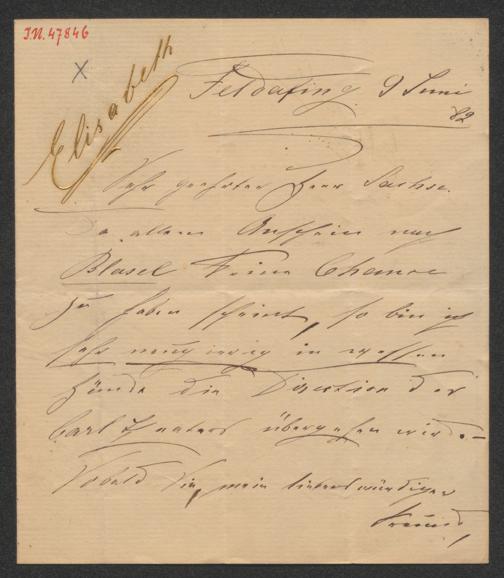 I.N. 47846
Elisabeth
Feldafing 9 Juni
82
Sehr geehrter Herr Sachse.
Da allem Anschein nach
Blasel keine Chance
zu haben scheint, so bin ich
sehr neugierig in wessen
Hände die Direction des
Carl Theaters übergehen wird. –
Sobald Sie, mein liebenswürdiger
Freund,